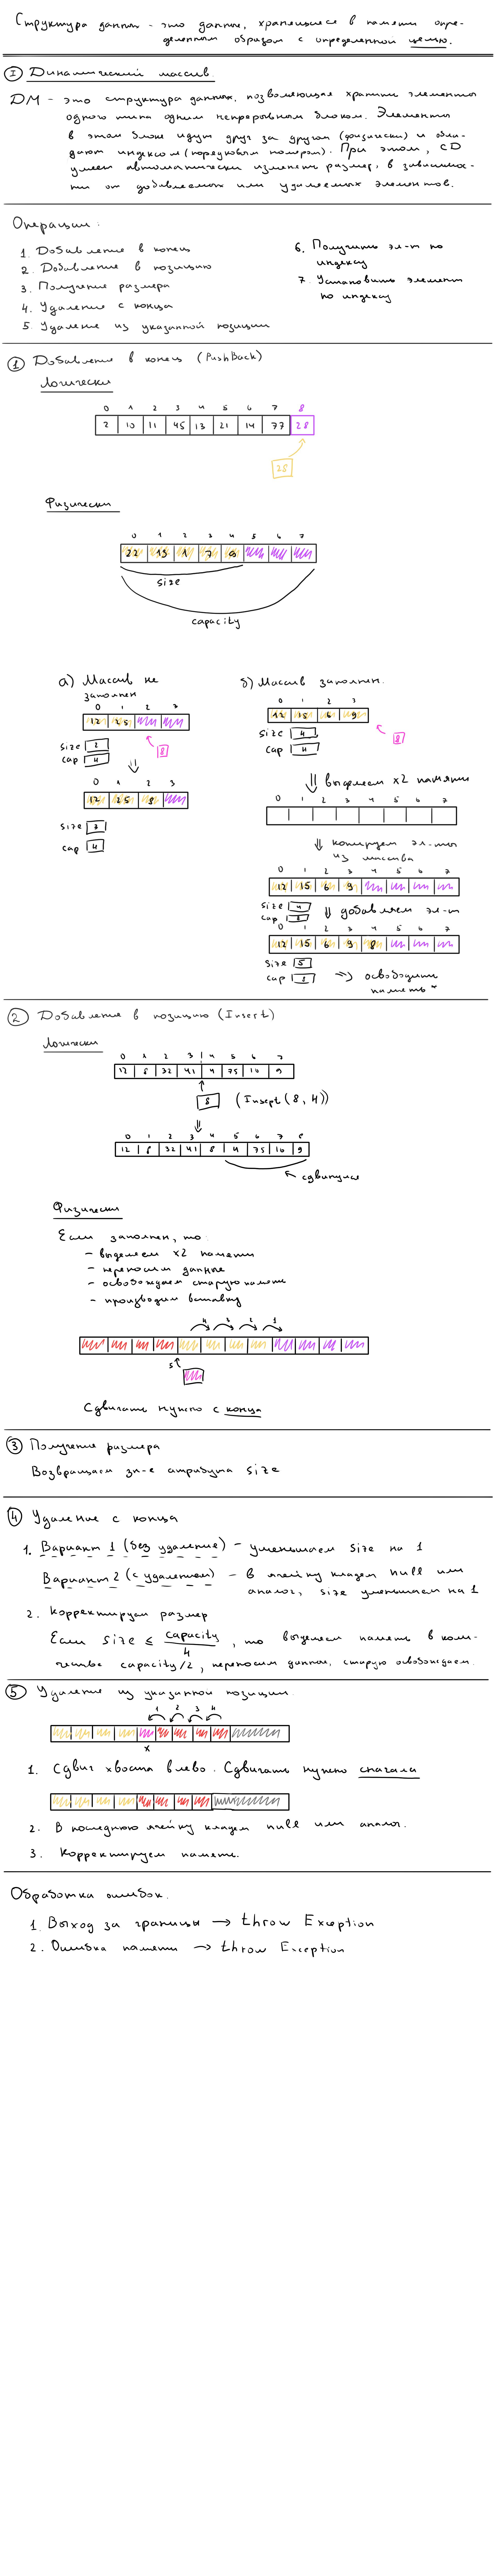 Структура данных - это данные, хранящиеся в памяти опре-
деленным образом с определенной целью.
I Динамический массив.
DM - это структура данных, позволяющая хранить элементы
одного типа одним непрерывным блоком. Элементы
в этом блоке идут друг за другом (физически) и обла-
дают индексом (порядковым номером). При этом, СD
умеет автоматически изменять размер, в зависимос-
ти от добавляемых или удаляемых элементов.
Операции:
1. Добавление в конец
2. Добавление в позицию
3. Получение размера
4. Удаление с конца
5. Удаление из указанной позиции
6. Получить эл-т по
индексу
7. Установить элемент
по индексу
1 Добавление в конец (PushBack)
Логически
0 1 2 3 4 5 6 7 8
2 10 11 45 13 21 14 77 28
28
Физически
0 1 2 3 4 5 6 7
22 15 1 7 8
size
capacity
а) Массив не
заполнен
0 1 2 3
12 25
8
size 2
cap 4
0 1 2 3
12 25 8
size 3
cap 4
б) Массив заполнен.
0 1 2 3
12 15 6 9
size 4
cap 4
8
выделяем x2 памяти
0 1 2 3 4 5 6 7
копируем эл-ты
из массива
0 1 2 3 4 5 6 7
12 15 6 9
size 4
cap 8
добавляем эл-т
0 1 2 3 4 5 6 7
12 15 6 9 8
size 5
cap 8
=> освободить
память
2 Добавление в позицию (Insert)
Логически
0 1 2 3 4 5 6 7
12 8 32 41 4 75 10 9
8 (Insert (8, 4))
0 1 2 3 4 5 6 7 8
12 8 32 41 8 4 75 10 9
сдвинулись
Физически
Если заполнен, то:
- выделяем x2 памяти
- переносим данные
- освобождаем старую память
- производим вставку
4 3 2 1
Сдвигать нужно с конца
3 Получение размера
Возвращаем зн-е атрибута size
4 Удаление с конца
1. Вариант 1 (без удаления) - уменьшаем size на 1
Вариант 2 (с удалением) - в ячейку кладем null или
аналог, size уменьшаем на 1
2. Корректируем размер
Если size ≤ capacity/4, то выделяем память в коли-
честве capacity/2, переносим данные, старую освобождаем.
5 Удаление из указанной позиции.
1 2 3 4
x
1. Сдвиг хвоста влево. Сдвигать нужно сначала
2. В последнюю ячейку кладем null или аналог.
3. Корректируем память.
Обработка ошибок.
1. Выход за границы → throw Exception
2. Ошибка памяти → throw Exception